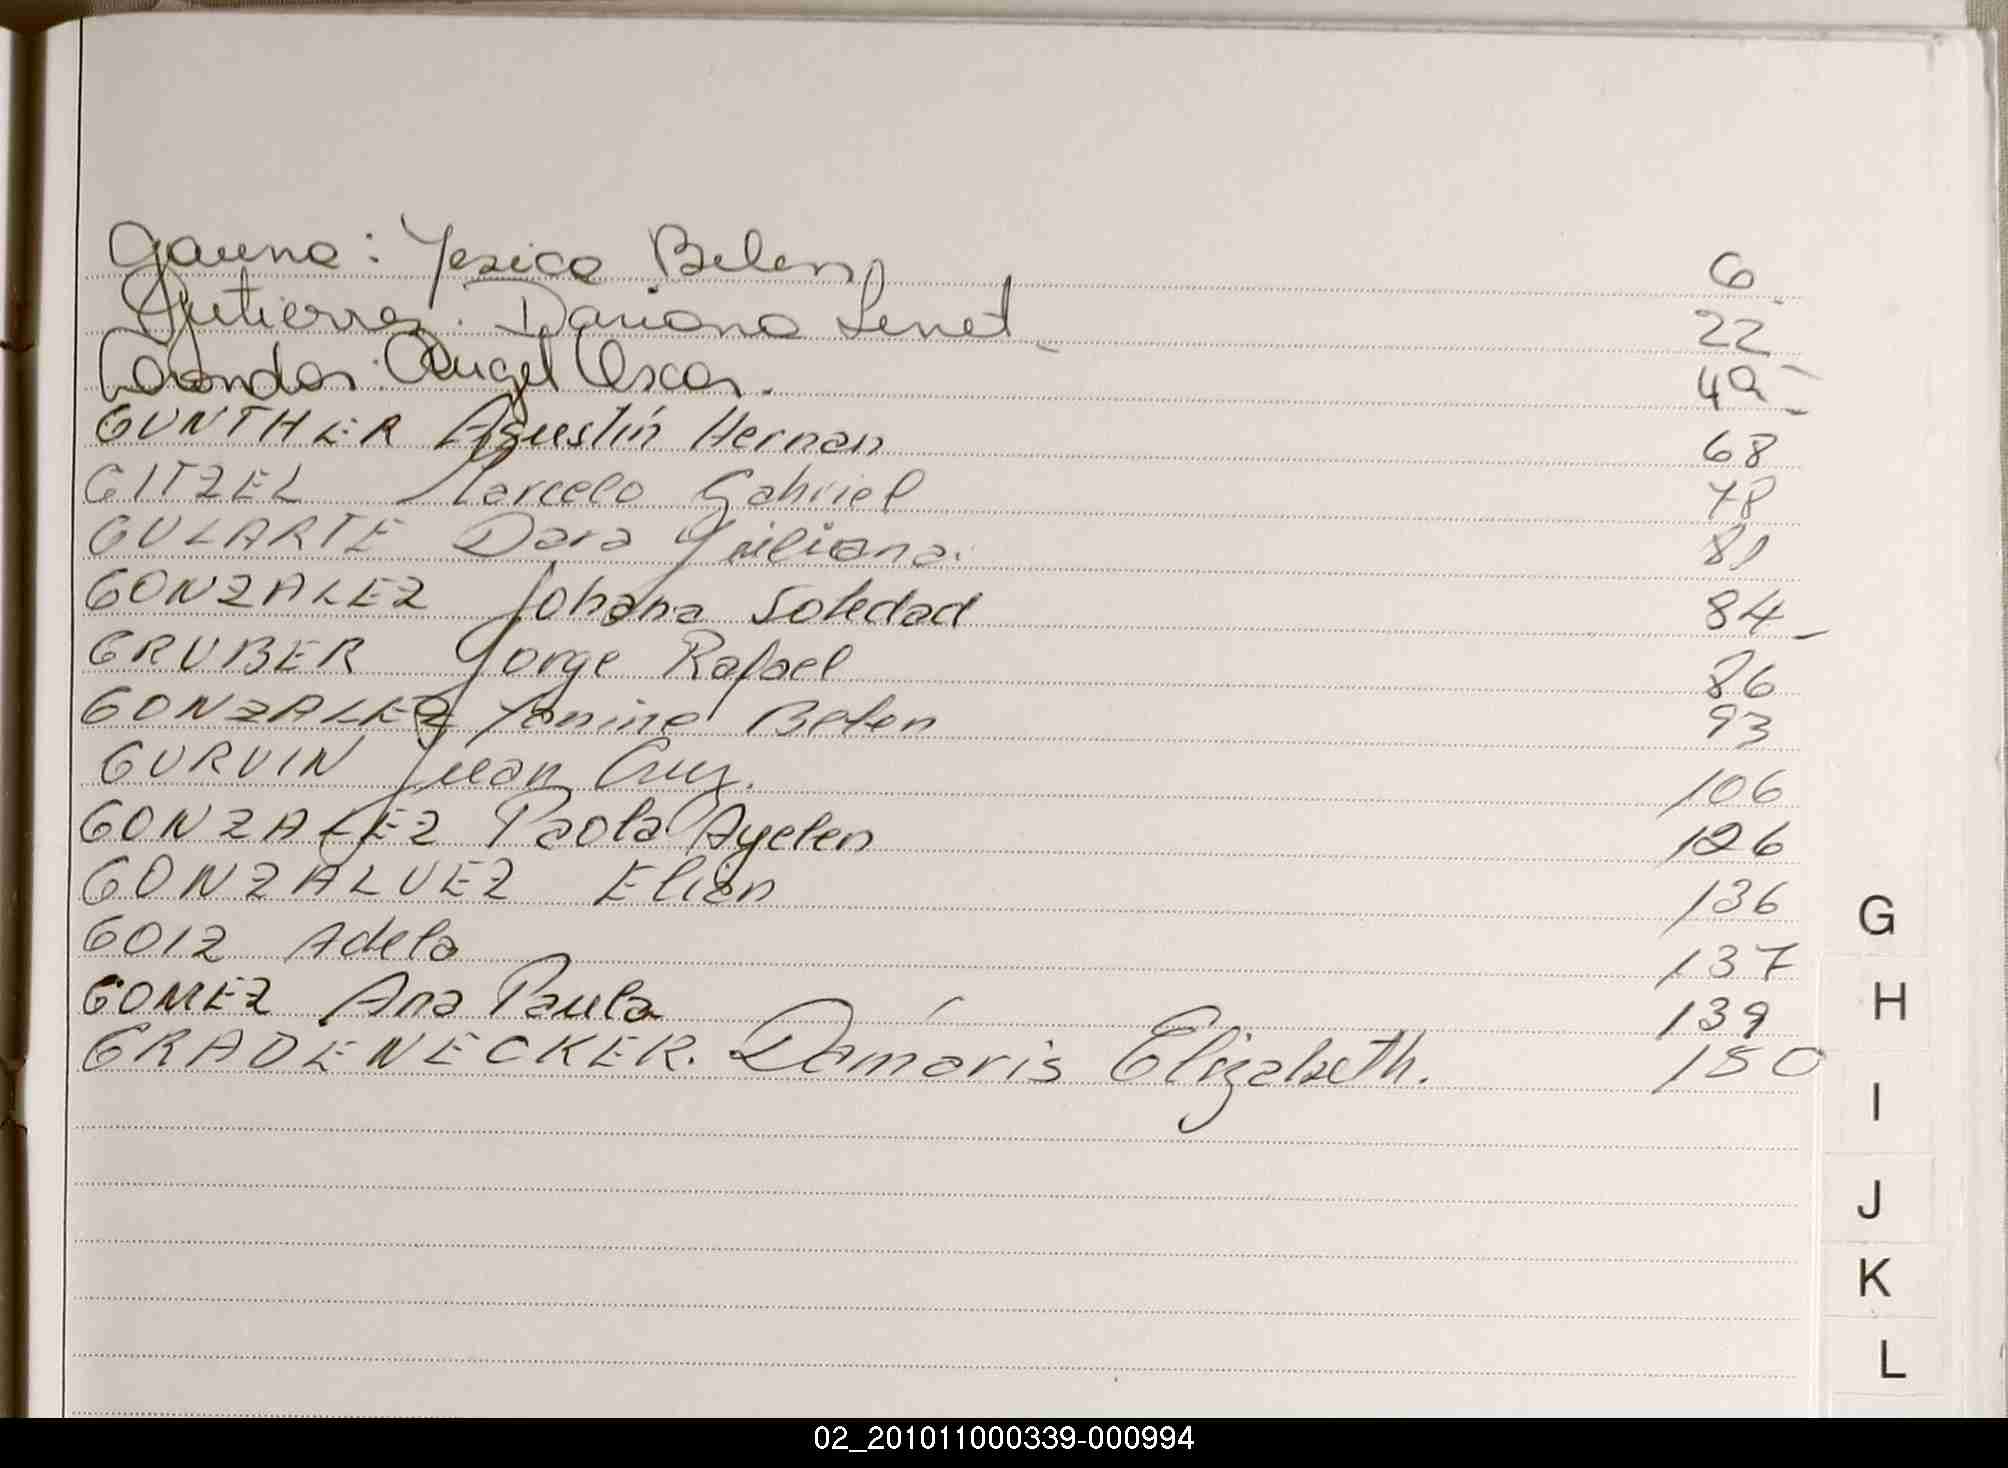 Gauna: Yesica Belen 6.
Gutierrez. Dariana Lenet. 22
Angel Oscar. 49-
GUNTHER Agustín Hernan 68
GITZEL Marcelo Gabriel 78
GULARTE Dara Yuliana. 81
GONZALEZ Johana Soledad 84-
GRUBER Jorge Rafael 86
GONZALEZ Yanina Belen 93
GURVIN Juan Cruz. 106
GONZALEZ Paola Ayelen 126
GONZALVEZ Elian 136
GOIZ Adela 137
GOMEZ Ana Paula 139
GRADENECKER. Damaris Elizabeth. 150
G
H
I
J
K
L
02_201011000339-000994